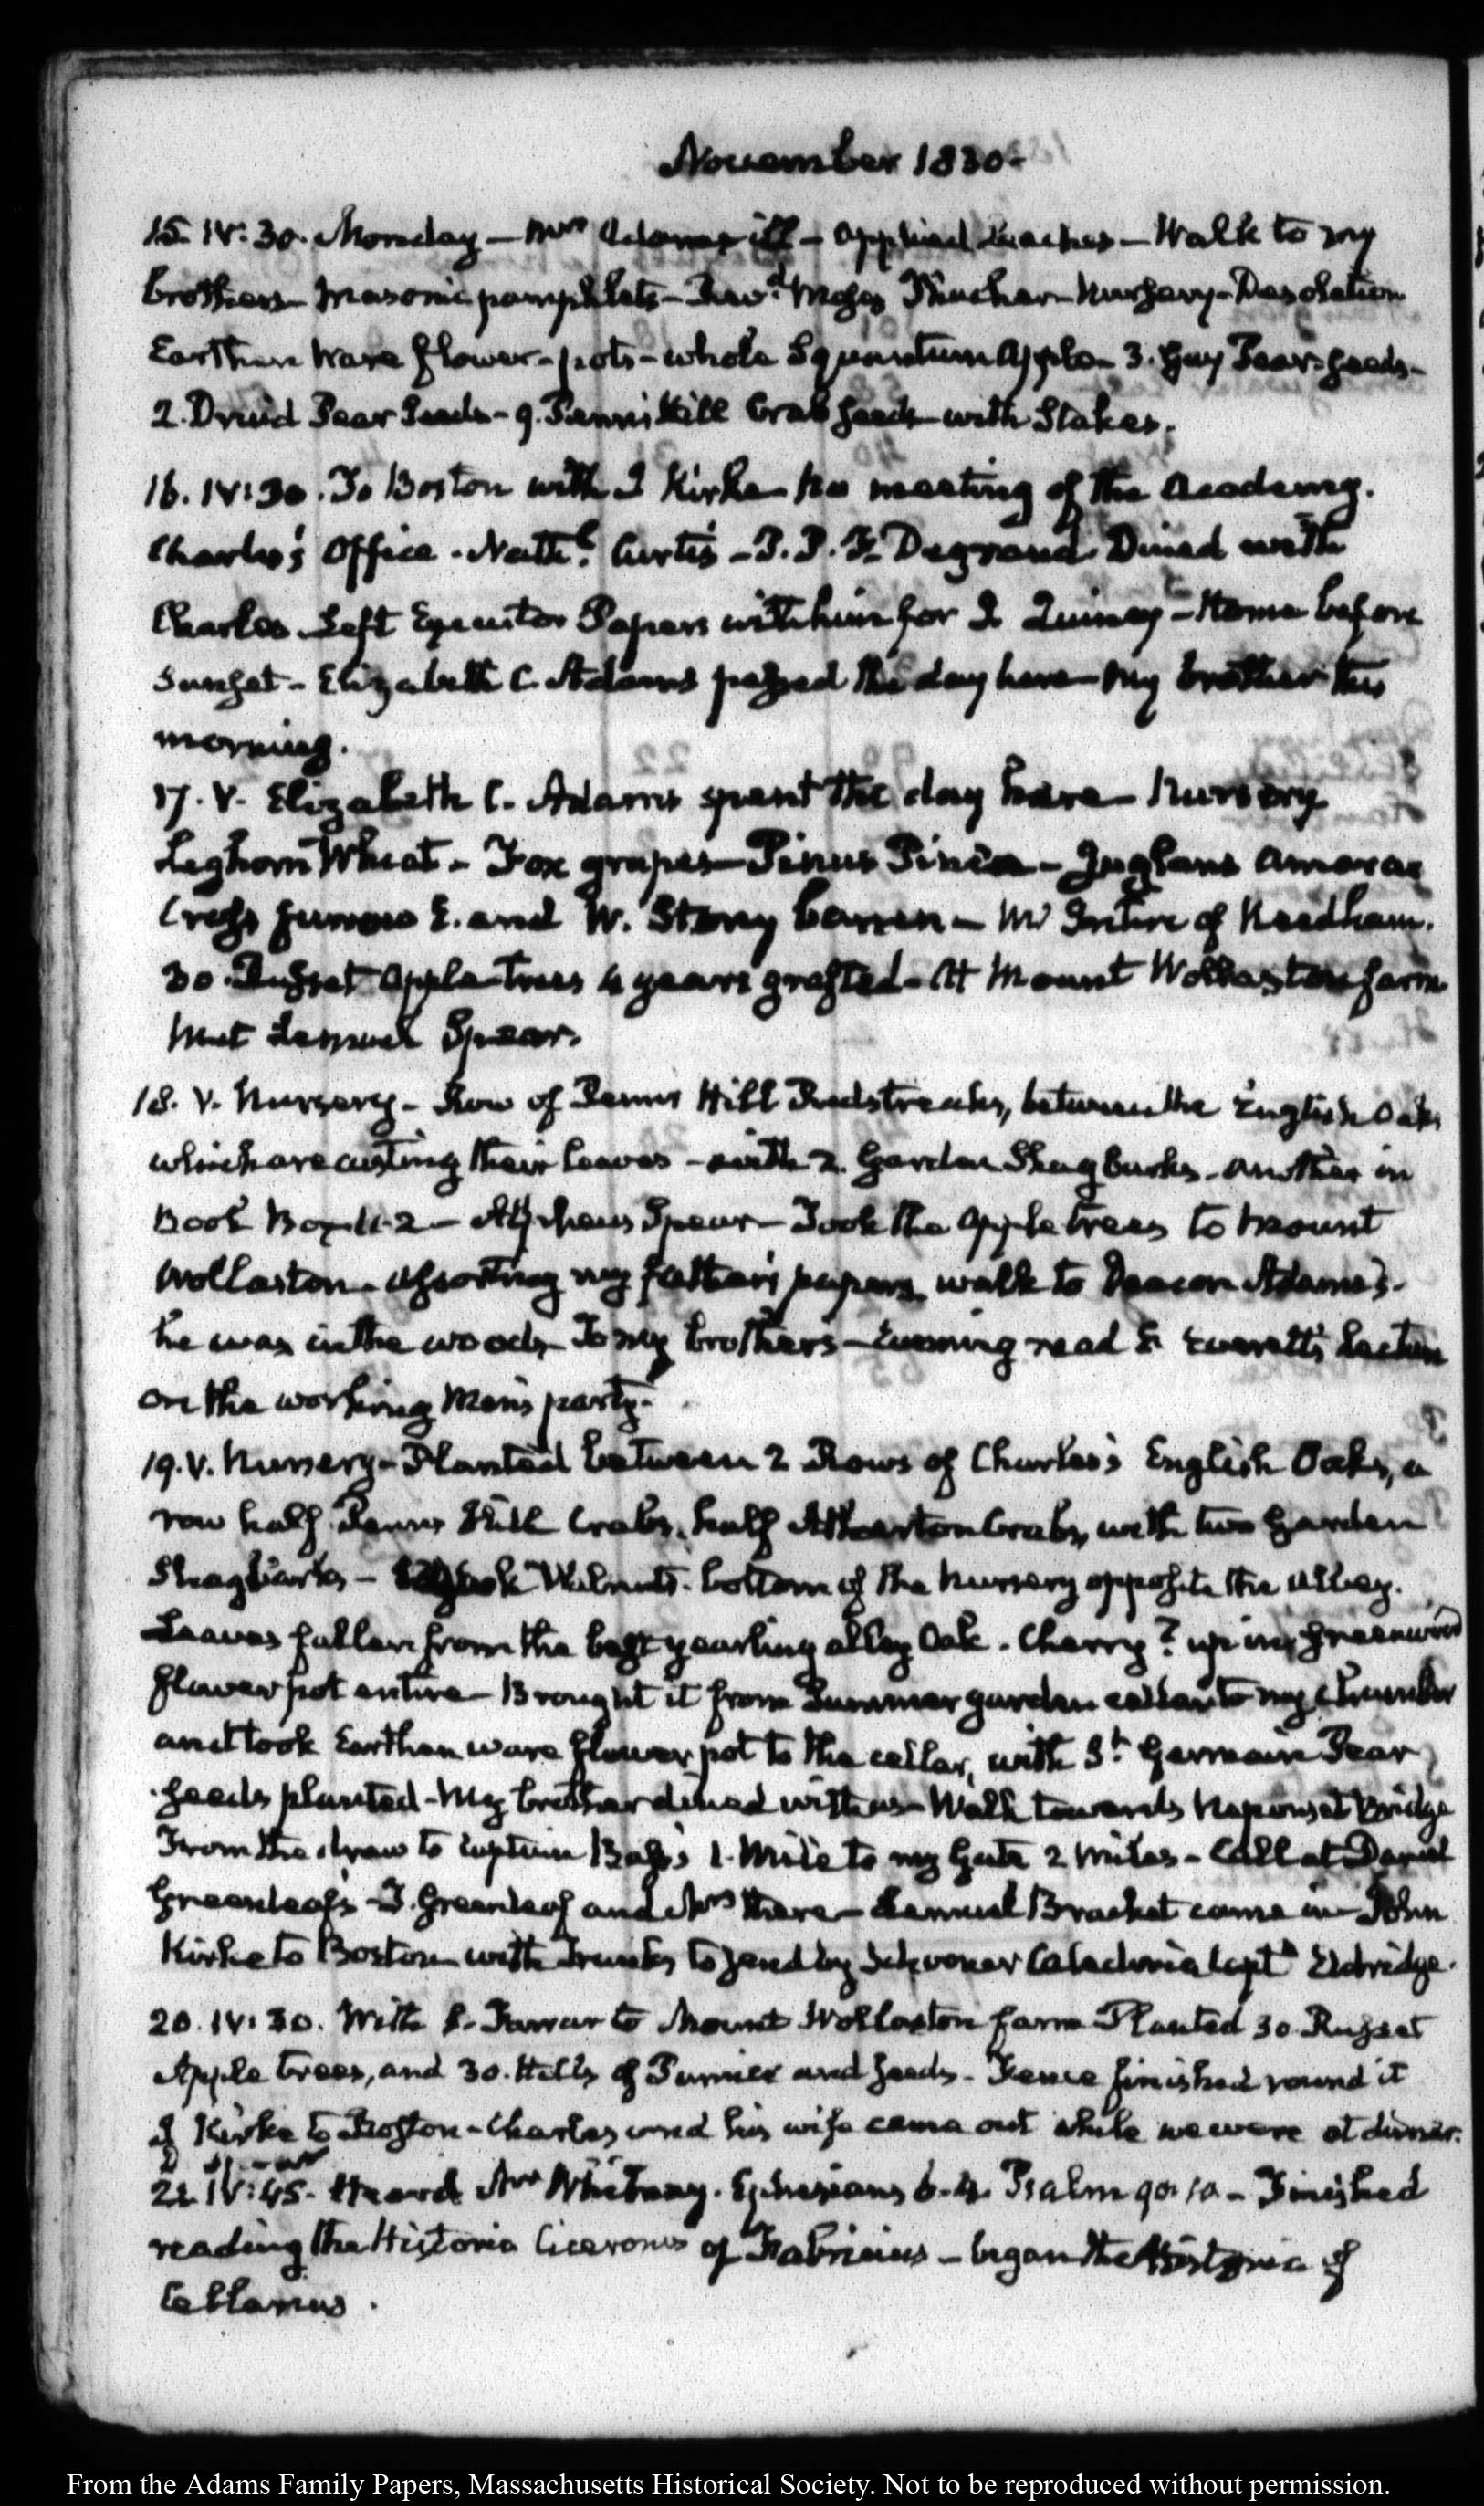 November 1830.
15. IV:30. Monday — Mrs Adams ill — applied leaches — Walk to my
brothers — Masonic pamphlets — Moses Thacher — Nursery — Desolation
Earthen Ware flower-pots — whole Squantum Apple — 3. Guy Pear seeds —
2. Druid Pear Seeds — 9. Penn's Hill Crab seeds with Stakes.
16. IV:30. To Boston with J Kirke — No meeting of the Academy.
Charles's Office. Nathl. Curtis — P. P. F. Degrand. Dined with
Charles. Left Executor Papers with him for J Quincy — Home before
Sunset — Elizabeth C. Adams passed the day here — My brother this
morning.
17. V. Elizabeth C. Adams spent the day here — Nursery
Leghorn Wheat — Fox grapes — Pinus Pinea — Juglans
Cross furrows E. and W. Stony barren — Mr Intire of Needham.
30. Russet Apple-trees 4 years grafted — At Mount Wollaston farm
Met Lemuel Spear.
18. V. Nursery — Row of Penn's Hill Redstreaks, between the English Oaks
which are casting their leaves — with 2. Garden Shagbarks. another in
Book Box N. 2 — Alpheus Spear — Took the apple trees to Mount
Wollaston — assorting my father's papers walk to Deacon Adams's.
he was in the woods — To my brothers — Evening read E. Everett's Lecture
on the working Men's party.
19. V. Nursery — Planted between 2 Rows of Charles's English Oaks, a
row half Penn's Hill Crabs, half Atherton Crabs, with two Garden
Shagbarks — Walnuts. bottom of the Nursery opposite the alley.
Leaves fallen from the best yearling alley Oak. Cherry? up in my greenwood
flower pot entire — Brought it from Summer garden cellar to my chamber
and took Earthen ware flower pot to the cellar, with St. Germain Pear
seeds planted — My brother dined with us — Walk towards Neponset Bridge
From the draw to Captain Bass's 1. Mile to my Gate 2 miles — Call at Daniel
Greenleaf's — T. Greenleaf and Mrs there — Lemuel Bracket came in — John
Kirke to Boston with Trunks to send by Schooner Caledonia Captn Eldridge.
20. IV:30. With to Mount Wollaston farm Planted 30 Russet
Apple trees, and 30. Hills of Pumice and seeds. Fence finished round it
J Kirke to Boston — Charles and his wife came out while we were at dinner.
21. IV:45. Heard Mr Whitney. Ephesians 6.4. Psalm 90.10 — Finished
reading the Historia Ciceronis of Fabricius — began the Historia of